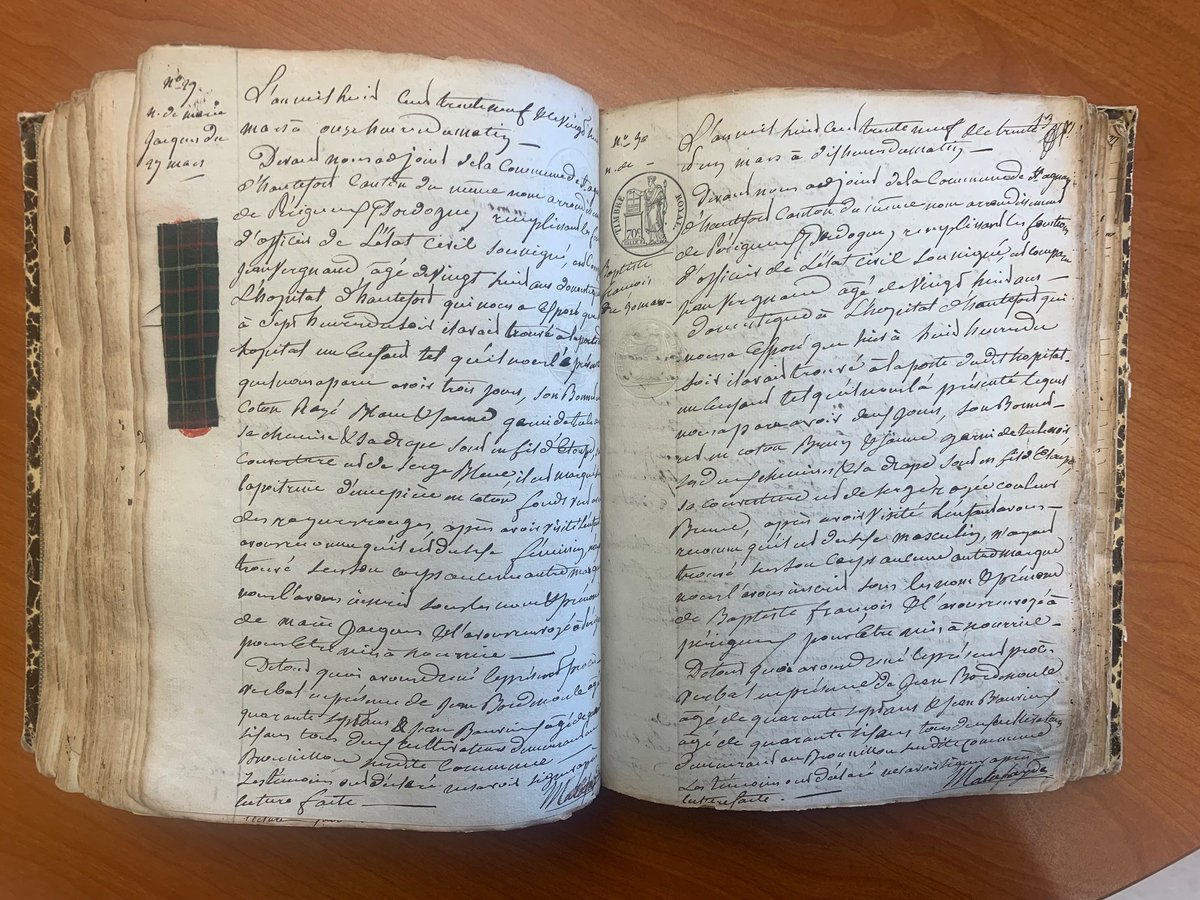 nº 29.
n. de marie
Jacques du
27 mars
L'an mil huit cent trente neuf & le vingt
mars à onze heures du matin —
Devant nous adjoint de la Commune de
d'hautefort Canton du même nom arrondis
de Périgueux Dordogne, remplissant les
d'officier de L'état Civil soussigné, est
jean Vergnaud âgé de vingt huit ans domestique
L'hopital d'hautefort qui nous a Exposé que
à Sept heures du soir il avait trouvé à la porte
hopital un Enfant tel qu'il nous l'a présenté
qui nous a paru avoir trois jours, son Bonnet
coton Rayé Blanc & jaune garni de tulle
sa chemise & sa drape sont en fil d'Etoupe
couverture est de Serge Blanc, il est marqué
la poitrine d'une pièce en coton, fonds vert
des rayures rouges, après avoir visité l'enfant
avons reconnu qu'il est du sexe féminin,
trouvé sur son corps aucune autre marque
nous l'avons inscrit sous les nom & prénom
de marie Jacques & l'avons renvoyé à
pour être mis à nourrice —
De tout quoi avons dressé le présent procès
verbal en présence de Jean Bordesoule âgé
quarante sept ans & jean Bauvieux âgé de
six ans tous deux cultivateurs demeurant
Brouillon susdite Commune
Les témoins ont déclaré ne savoir signer
lecture faite —
nº 30
n. de
TIMBRE ROYAL
70c
Baptiste
françois
du 30 mars
L'an mil huit cent trente neuf & le trente
mars à dix heures du matin —
Devant nous adjoint de la Commune de St agnan
d'hautefort Canton du même nom arrondissement
de Périgueux Dordogne, remplissant les fonctions
d'officier de L'état Civil soussigné est comparu
jean Vergnaud âgé de vingt huit ans —
domestique à L'hopital d'hautefort qui
nous a Exposé que hier à huit heures du
soir il avait trouvé à la porte dudit hopital
un Enfant tel qu'il nous la présenté lequel
nous a paru avoir deux jours, son Bonnet
est en coton Brun & jaune garni de tulle noir
ses deux chemises & sa drape sont en fil d'Etoupe
sa couverture est de serge rayée couleur
Brune, après avoir visité l'enfant avons
reconnu qu'il est du sexe masculin, n'ayant
trouvé sur son corps aucune autre marque
nous l'avons inscrit sous les nom & prénom
de Baptiste françois & l'avons renvoyé à
périgueux pour être mis à nourrice —
De tout quoi avons dressé le présent procès
verbal en présence de Jean Bordesoule
âgé de quarante sept ans & Jean Bauvieux
âgé de quarante six ans tous deux cultivateurs
demeurant au Brouillon susdite Commune
Les témoins ont déclaré ne savoir signer après
lecture faite —